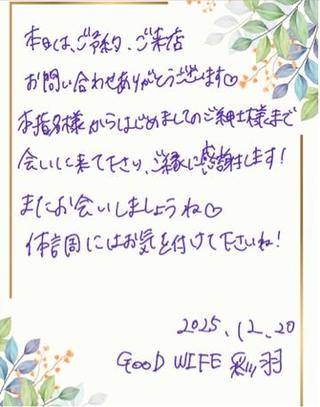 本日は、ご予約、ご来店
お問い合わせありがとうございます♡
本指名様からはじめましてのご紳士様まで
会いに来て下さり、ご縁に感謝します!
またお会いしましょうね♡
体調にはお気を付けて下さいね!
2025.12.20
GOOD WIFE 彩羽